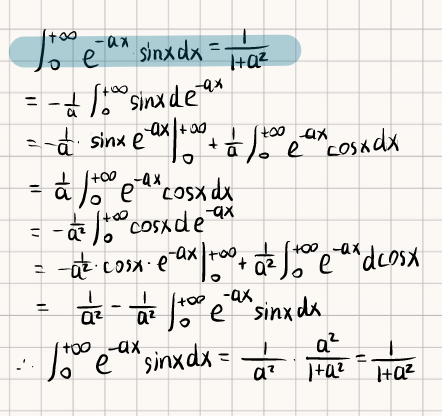 ∫₀^{+∞} e^{-ax} sinxdx = 1/(1+a²)
= -1/a ∫₀^{+∞} sinx de^{-ax}
= -1/a · sinx e^{-ax} |₀^{+∞} + 1/a ∫₀^{+∞} e^{-ax} cosxdx
= 1/a ∫₀^{+∞} e^{-ax} cosxdx
= -1/a² ∫₀^{+∞} cosx de^{-ax}
= -1/a² · cosx · e^{-ax} |₀^{+∞} + 1/a² ∫₀^{+∞} e^{-ax} dcosx
= 1/a² - 1/a² ∫₀^{+∞} e^{-ax} sinxdx
∴ ∫₀^{+∞} e^{-ax} sinxdx = 1/a² · a²/(1+a²) = 1/(1+a²)